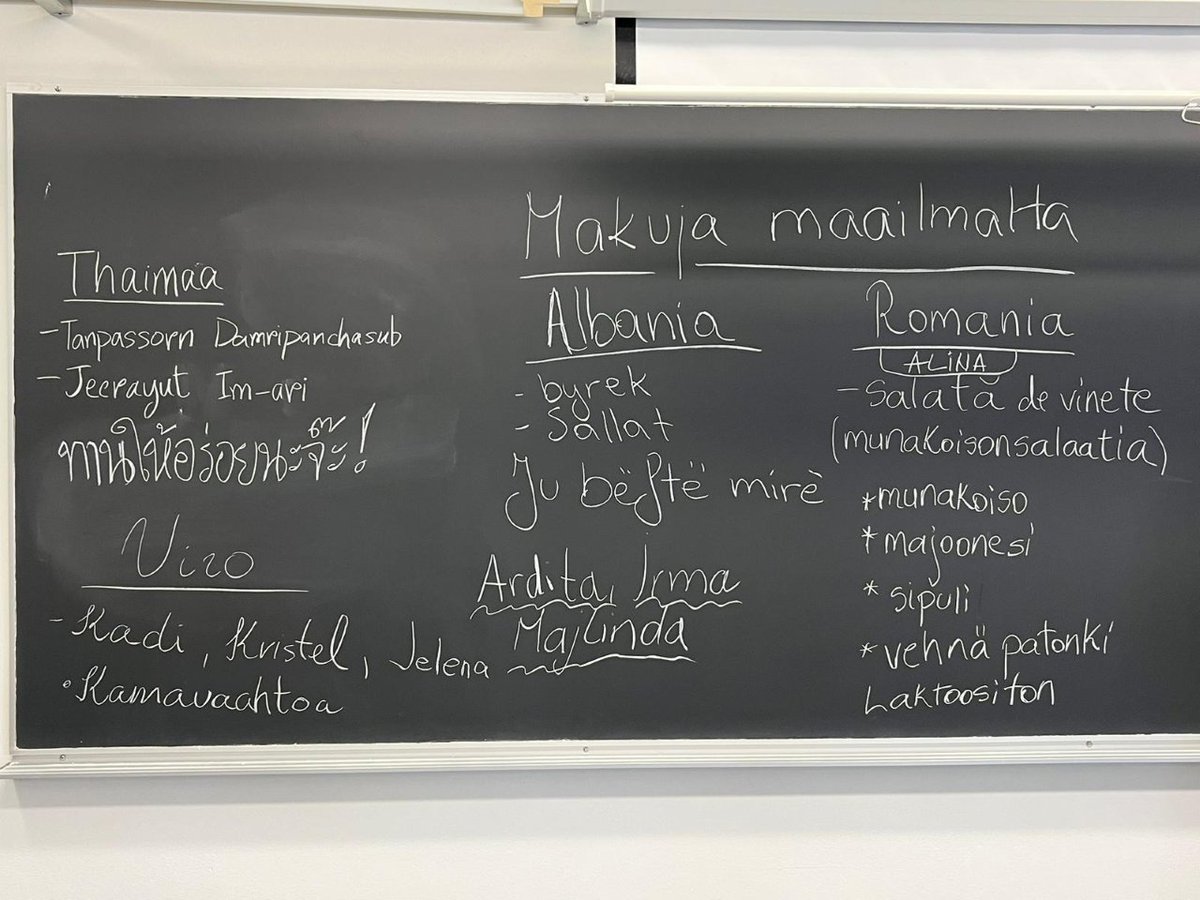 Makuja maailmalta
Thaimaa
-Tanpassorn Damripanchasub
-Jeerayut Im-ari
ทานให้อร่อยนะจ๊ะ!
Viro
-Kadi, Kristel, Jelena
•Kamavaahtoa
Albania
- byrek
- Sallat
Ju bëftë mirë
Ardita, Irma
Majlinda
Romania
ALINA
-Salată de vinete
(munakoisonsalaatia)
*munakoiso
*majoonesi
*sipuli
*vehnä patonki
Laktoositon